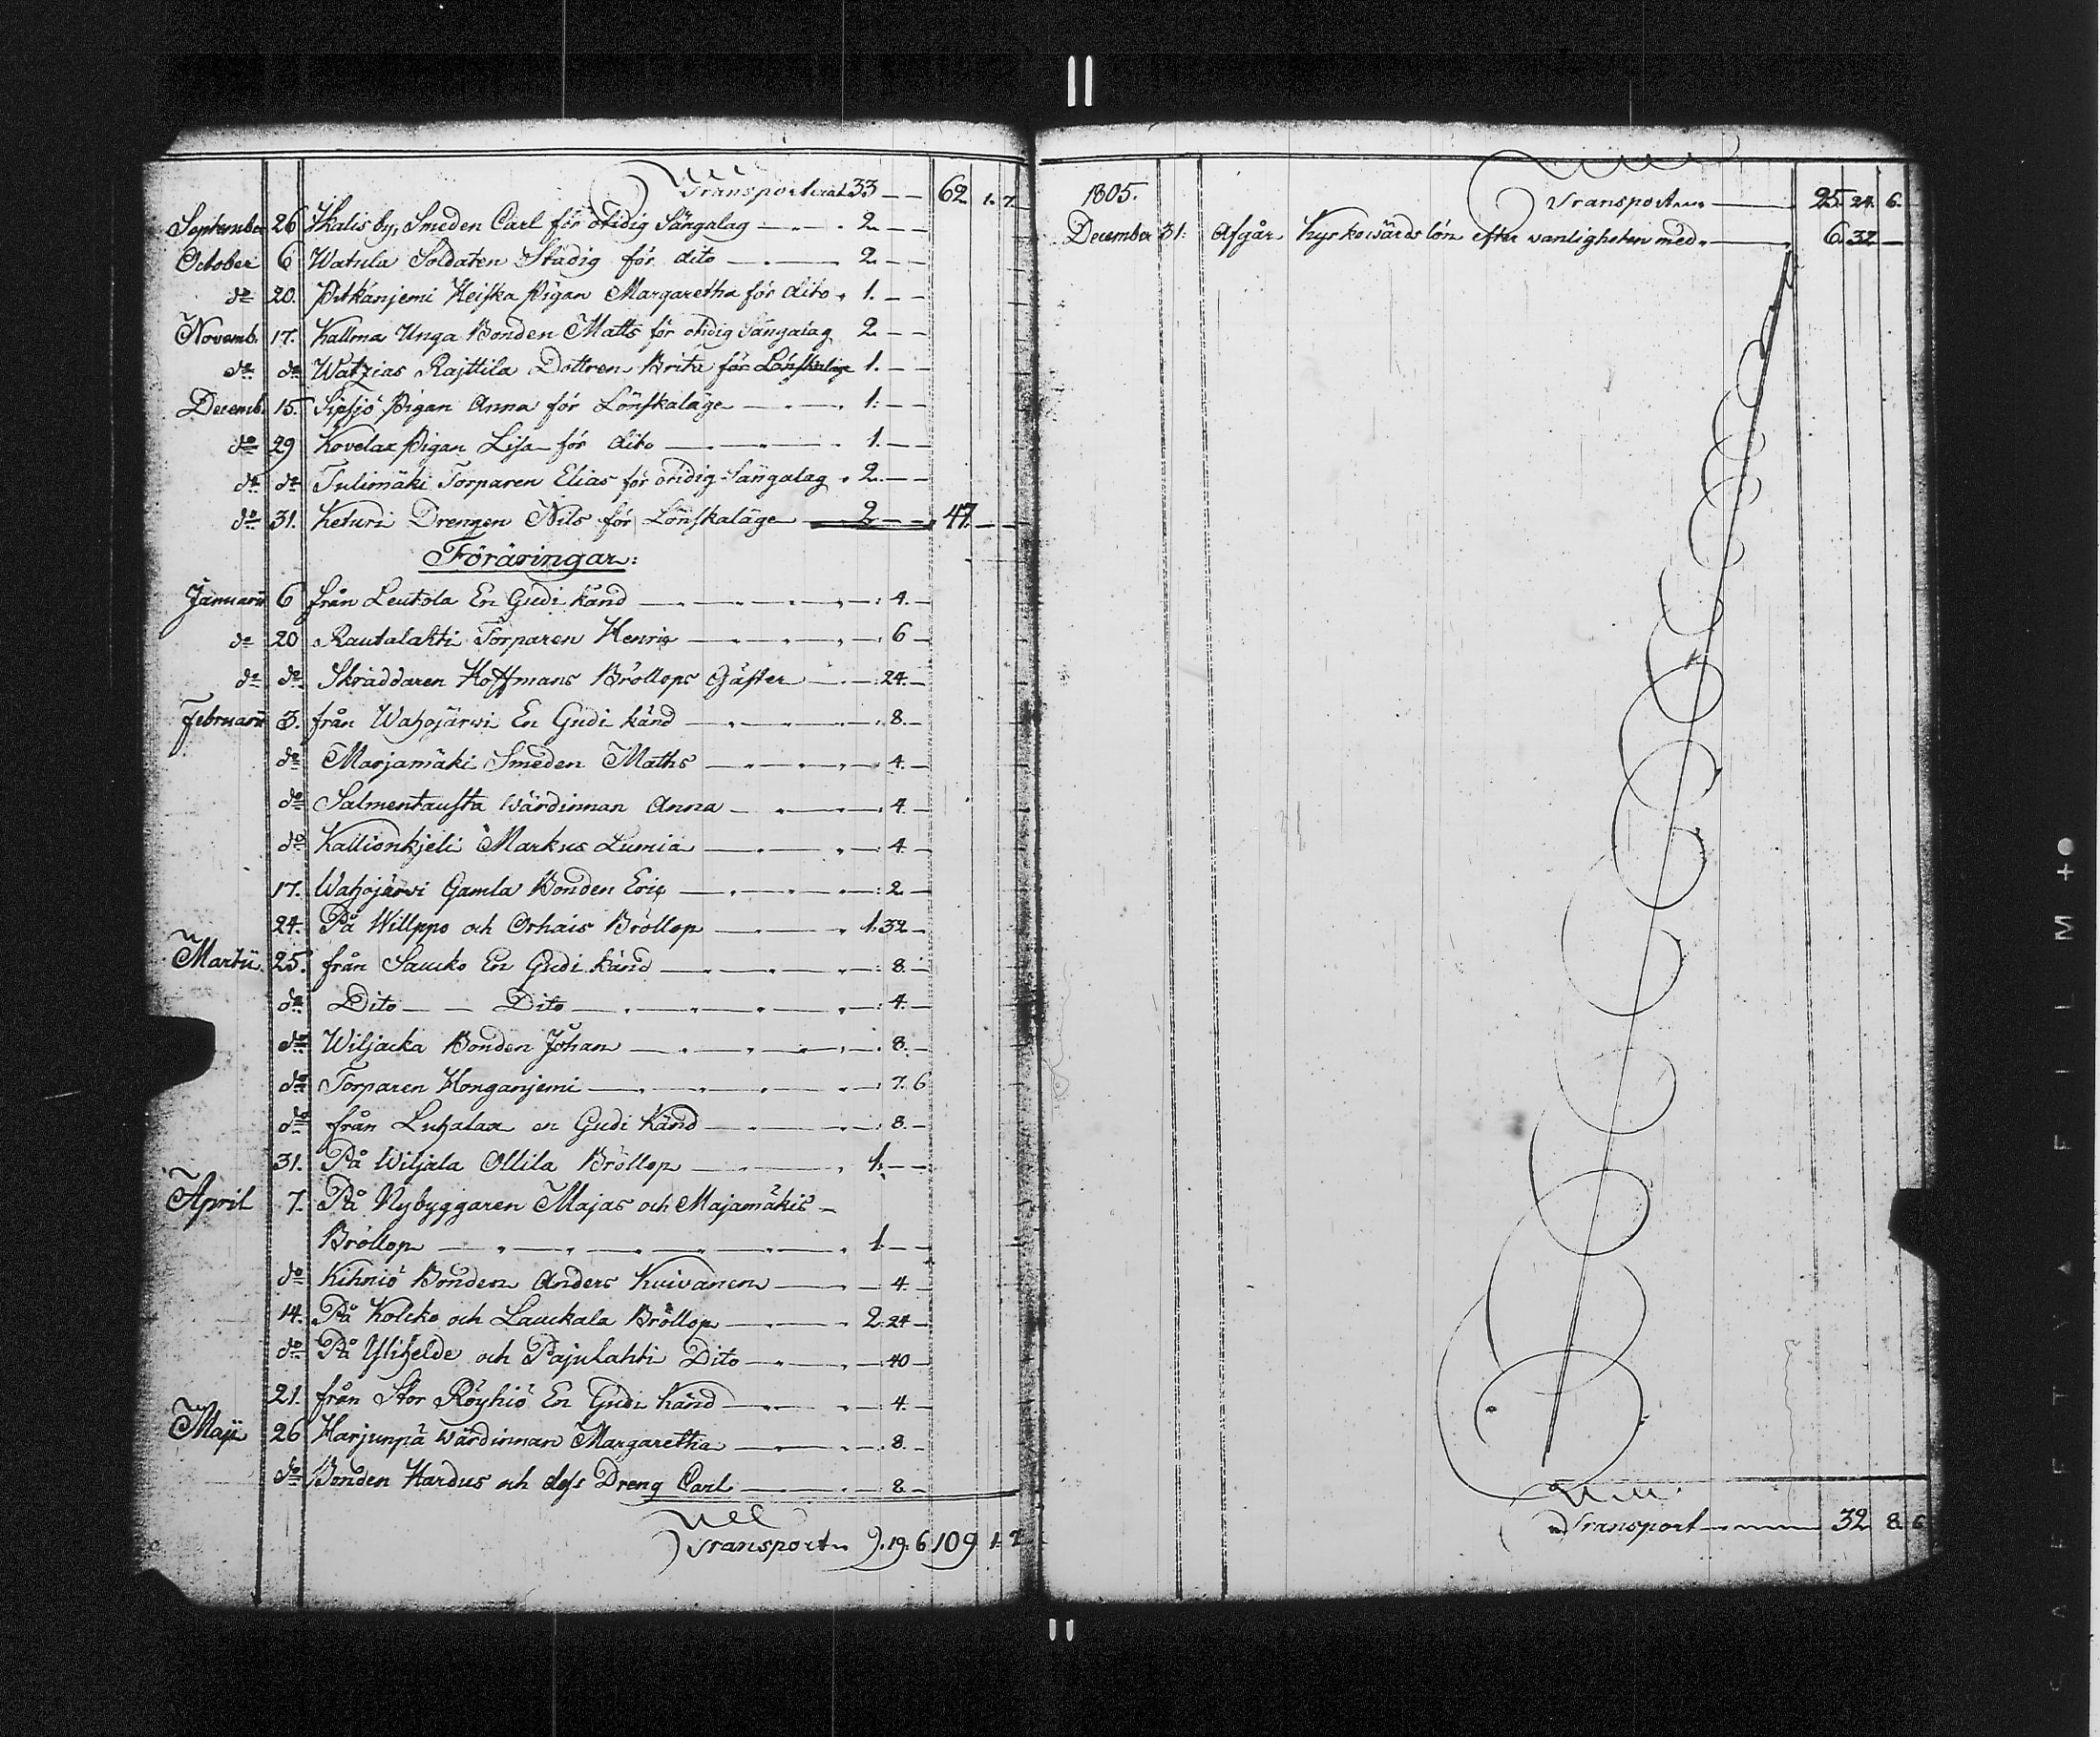 Transporterat 33 — — 62. 1. 7.
September 26 Skalis by, Smeden Carl för otidig Sängalag — 2. — —
October 6 Watula Soldaten Stadig för dito — 2. — —
do 20. Pitkänjemi Heiska Pigan Margaretha för dito 1. — —
Novemb. 17. Kallma Unga Bonden Matts för otidig Sängalag 2 — —
do do Watzias Rajttila Dottren Brita för Lönskaläge 1. — —
Decemb. 15. Sipsjö Pigan Anna för Lönskaläge — 1. — —
do 29 Kovelax Pigan Lisa för dito — 1. — —
do do Tulimäki Torparen Elias för otidig Sängalag 2. — —
do 31. Keturi Drengen Nils för Lönskaläge 2 — — 47. — —
Föräringar:
Januarii 6 från Leutola En Gudi känd — : 4. —
do 20 Rautalahti Torparen Henric — : 6 —
do do Skräddaren Hoffmans Bröllops Gäster — : 24. —
Februarii 3. från Wahojärwi En Gudi känd — : 8. —
do Marjamäki Smeden Maths — : 4. —
do Salmentausta wärdinnan Anna — : 4. —
do Kallionkjeli Markus Lumia — : 4. —
17. Wahojärwi Gamla Bonden Eric — : 2 —
24. På Willppo och Orhais Bröllop — 1: 32 —
Martii. 25. från Saucko En Gudi känd — : 8. —
do Dito — — Dito — : 4. —
do Wiljacka Bonden Johan — : 8. —
do Torparen Honganjemi — : 7. 6
do från Luhalax en Gudi Känd — : 8. —
31. På Wiljala Ollila Bröllop — 1: — —
April 7. På Nybyggaren Majas och Majamäkis —
Bröllop — 1. — —
do Kihniö Bonden Anders Kuivanen — 4. —
14. På Kolcko och Lauckala Bröllop — 2: 24 —
do På Ylihelde och Pajulahti Dito — : 40 —
21. från Stor Röyhiö En Gudi Känd — 4. —
Maji 26 Harjunpä Wärdinnan Margaretha — 8. —
do Bonden Hardus och dess Dreng Carl — 8. —
Transport 9. 19. 6 109 1. 7.
1805. Transport — 25. 24. 6.
December 31. Afgår Kyrkowärds lön efter wanligheten med — 6. 32 —
Transport — 32 8. 6
SAFETY FILM